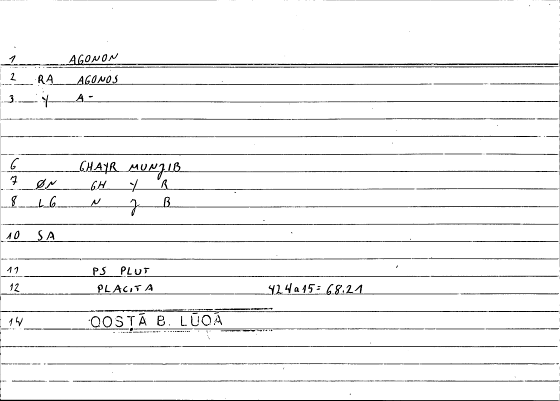 1 AGONON
2 RA AGONOS
3 Y A-
6 GHAYR MUNJIB
7 ØN GH Y R
8 LG N J B
10 SA
11 PS PLUT
12 PLACITA 424a15=68.21
14 QOSṬĀ B. LŪQĀ